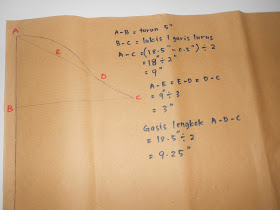 A
E
D
B
C
A-B = turun 5"
B-C = lukis 1 garis lurus
A-C = (18.5" - 0.5") ÷ 2
= 18" ÷ 2"
= 9"
A-E = E-D = D-C
= 9" ÷ 3
= 3"
Garis lengkok A-D-C
= 18.5" ÷ 2
= 9.25"